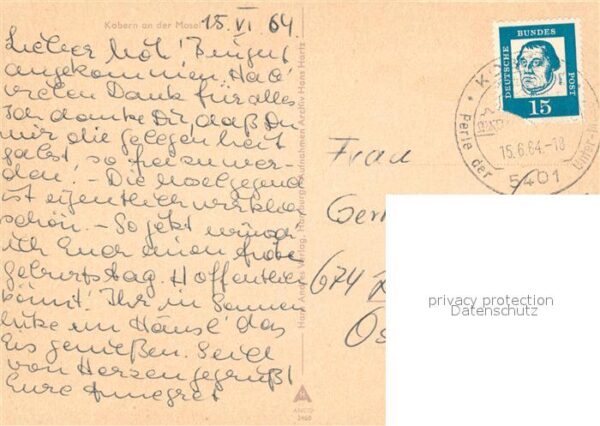 Kobern an der Mosel
15. VI 64.
Lieber
angekommen. Hab'
vielen Dank für alles
Ich danke Dir, daß Du
mir die Gelegenheit
gabst, so frei zu wer-
den. - Die Moselgegend
ist eigentlich wirklich
schön. - So jetzt wünsch
ich Euch einen frohen
Geburtstag. Hoffentlich
könnt Ihr in Sonnen
im Häusl das
Eis genießen. Seid
von Herzen gegrüßt
Eure Annegret
Hans Andres Verlag, Hamburg
Aufnahmen Archiv Hans Hartz
ANCO
DEUTSCHE BUNDES POST
15
Perle der
15.6.64.-18
5401
Frau
674
privacy protection
Datenschutz